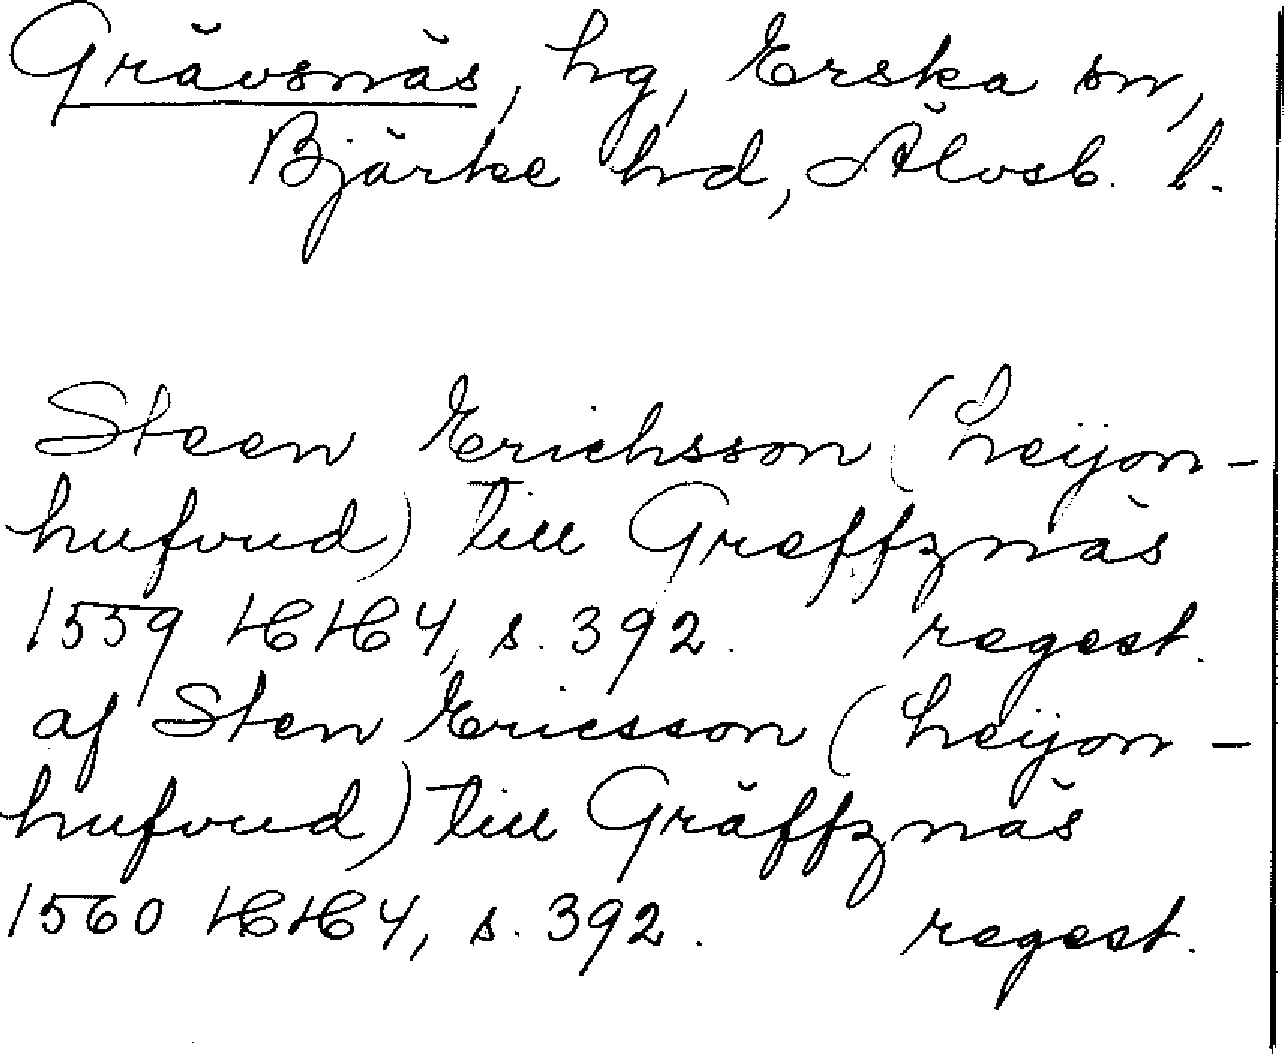 Grävsnäs, hg, Erska sn,
Bjärke hd, Älvsb. l.
Steen Erichsson (Leijon-
hufvud) till Greffznäs
1559 HH 4, s. 392. regest.
af Sten Ericsson (Leijon-
hufvud) till Gräffznäs
1560 HH 4, s. 392. regest.